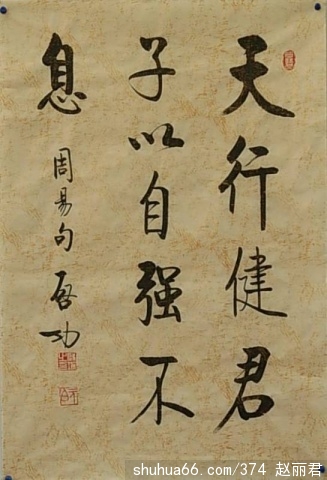 天行健君
子以自强不
息
周易句 启功
shuhua66.com/374 赵丽君